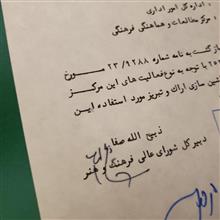 اداره کل امور اداری
مرکز مطالعات و هماهنگی فرهنگی
بازگشت به نامه شماره ۲۳/۹۲۸۸ مورخ
با توجه به نوع فعالیت های این مرکز
سازی اراک و تبریز مورد استفاده این
ذبیح الله صفا
دبیر کل شورای عالی فرهنگ و هنر